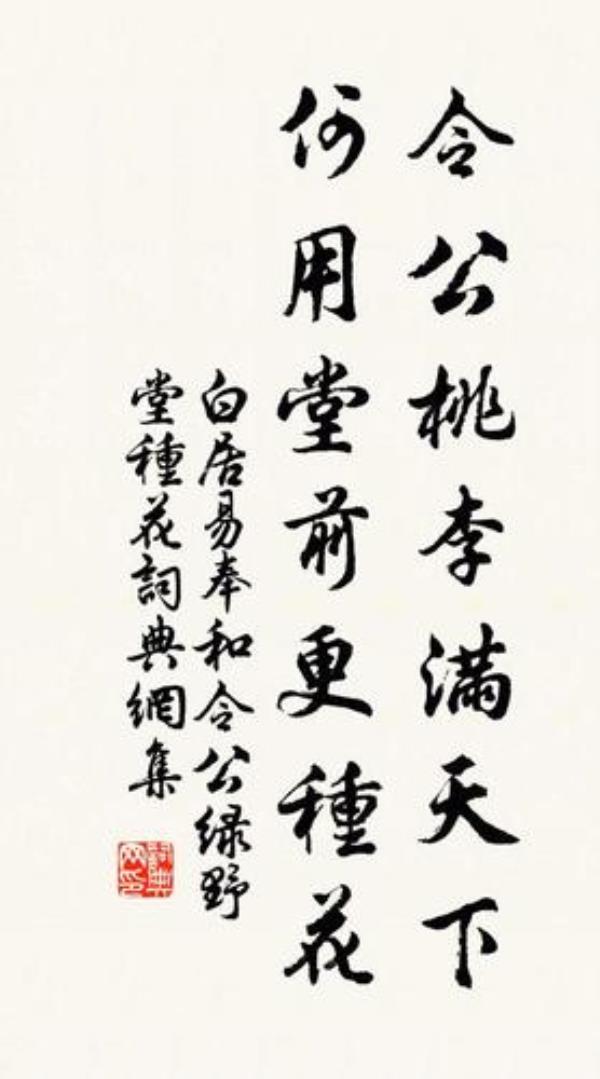 令公桃李滿天下
何用堂前更種花
白居易奉和令公緑野
堂種花詞典網集
詞典网印